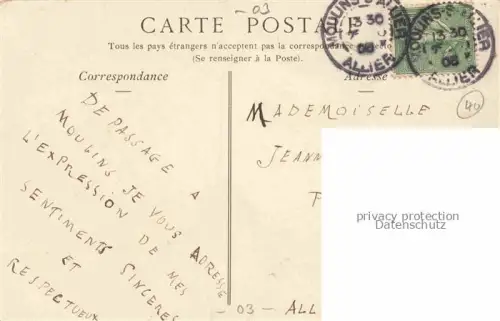 -03
CARTE POSTALE
Tous les pays étrangers n'acceptent pas la correspondance
(Se renseigner à la Poste).
Correspondance
Adresse
DE PASSAGE A
MOULINS JE VOUS ADRESSE
L'EXPRESSION DE MES
SENTIMENTS SINCERES
ET
RESPECTUEUX
MOULINS-S-ALLIER
13 30
06
ALLIER
MOULINS-S-ALLIER
13 30
06
ALLIER
MADEMOISELLE
40
JEANN
privacy protection
Datenschutz
-03- ALL